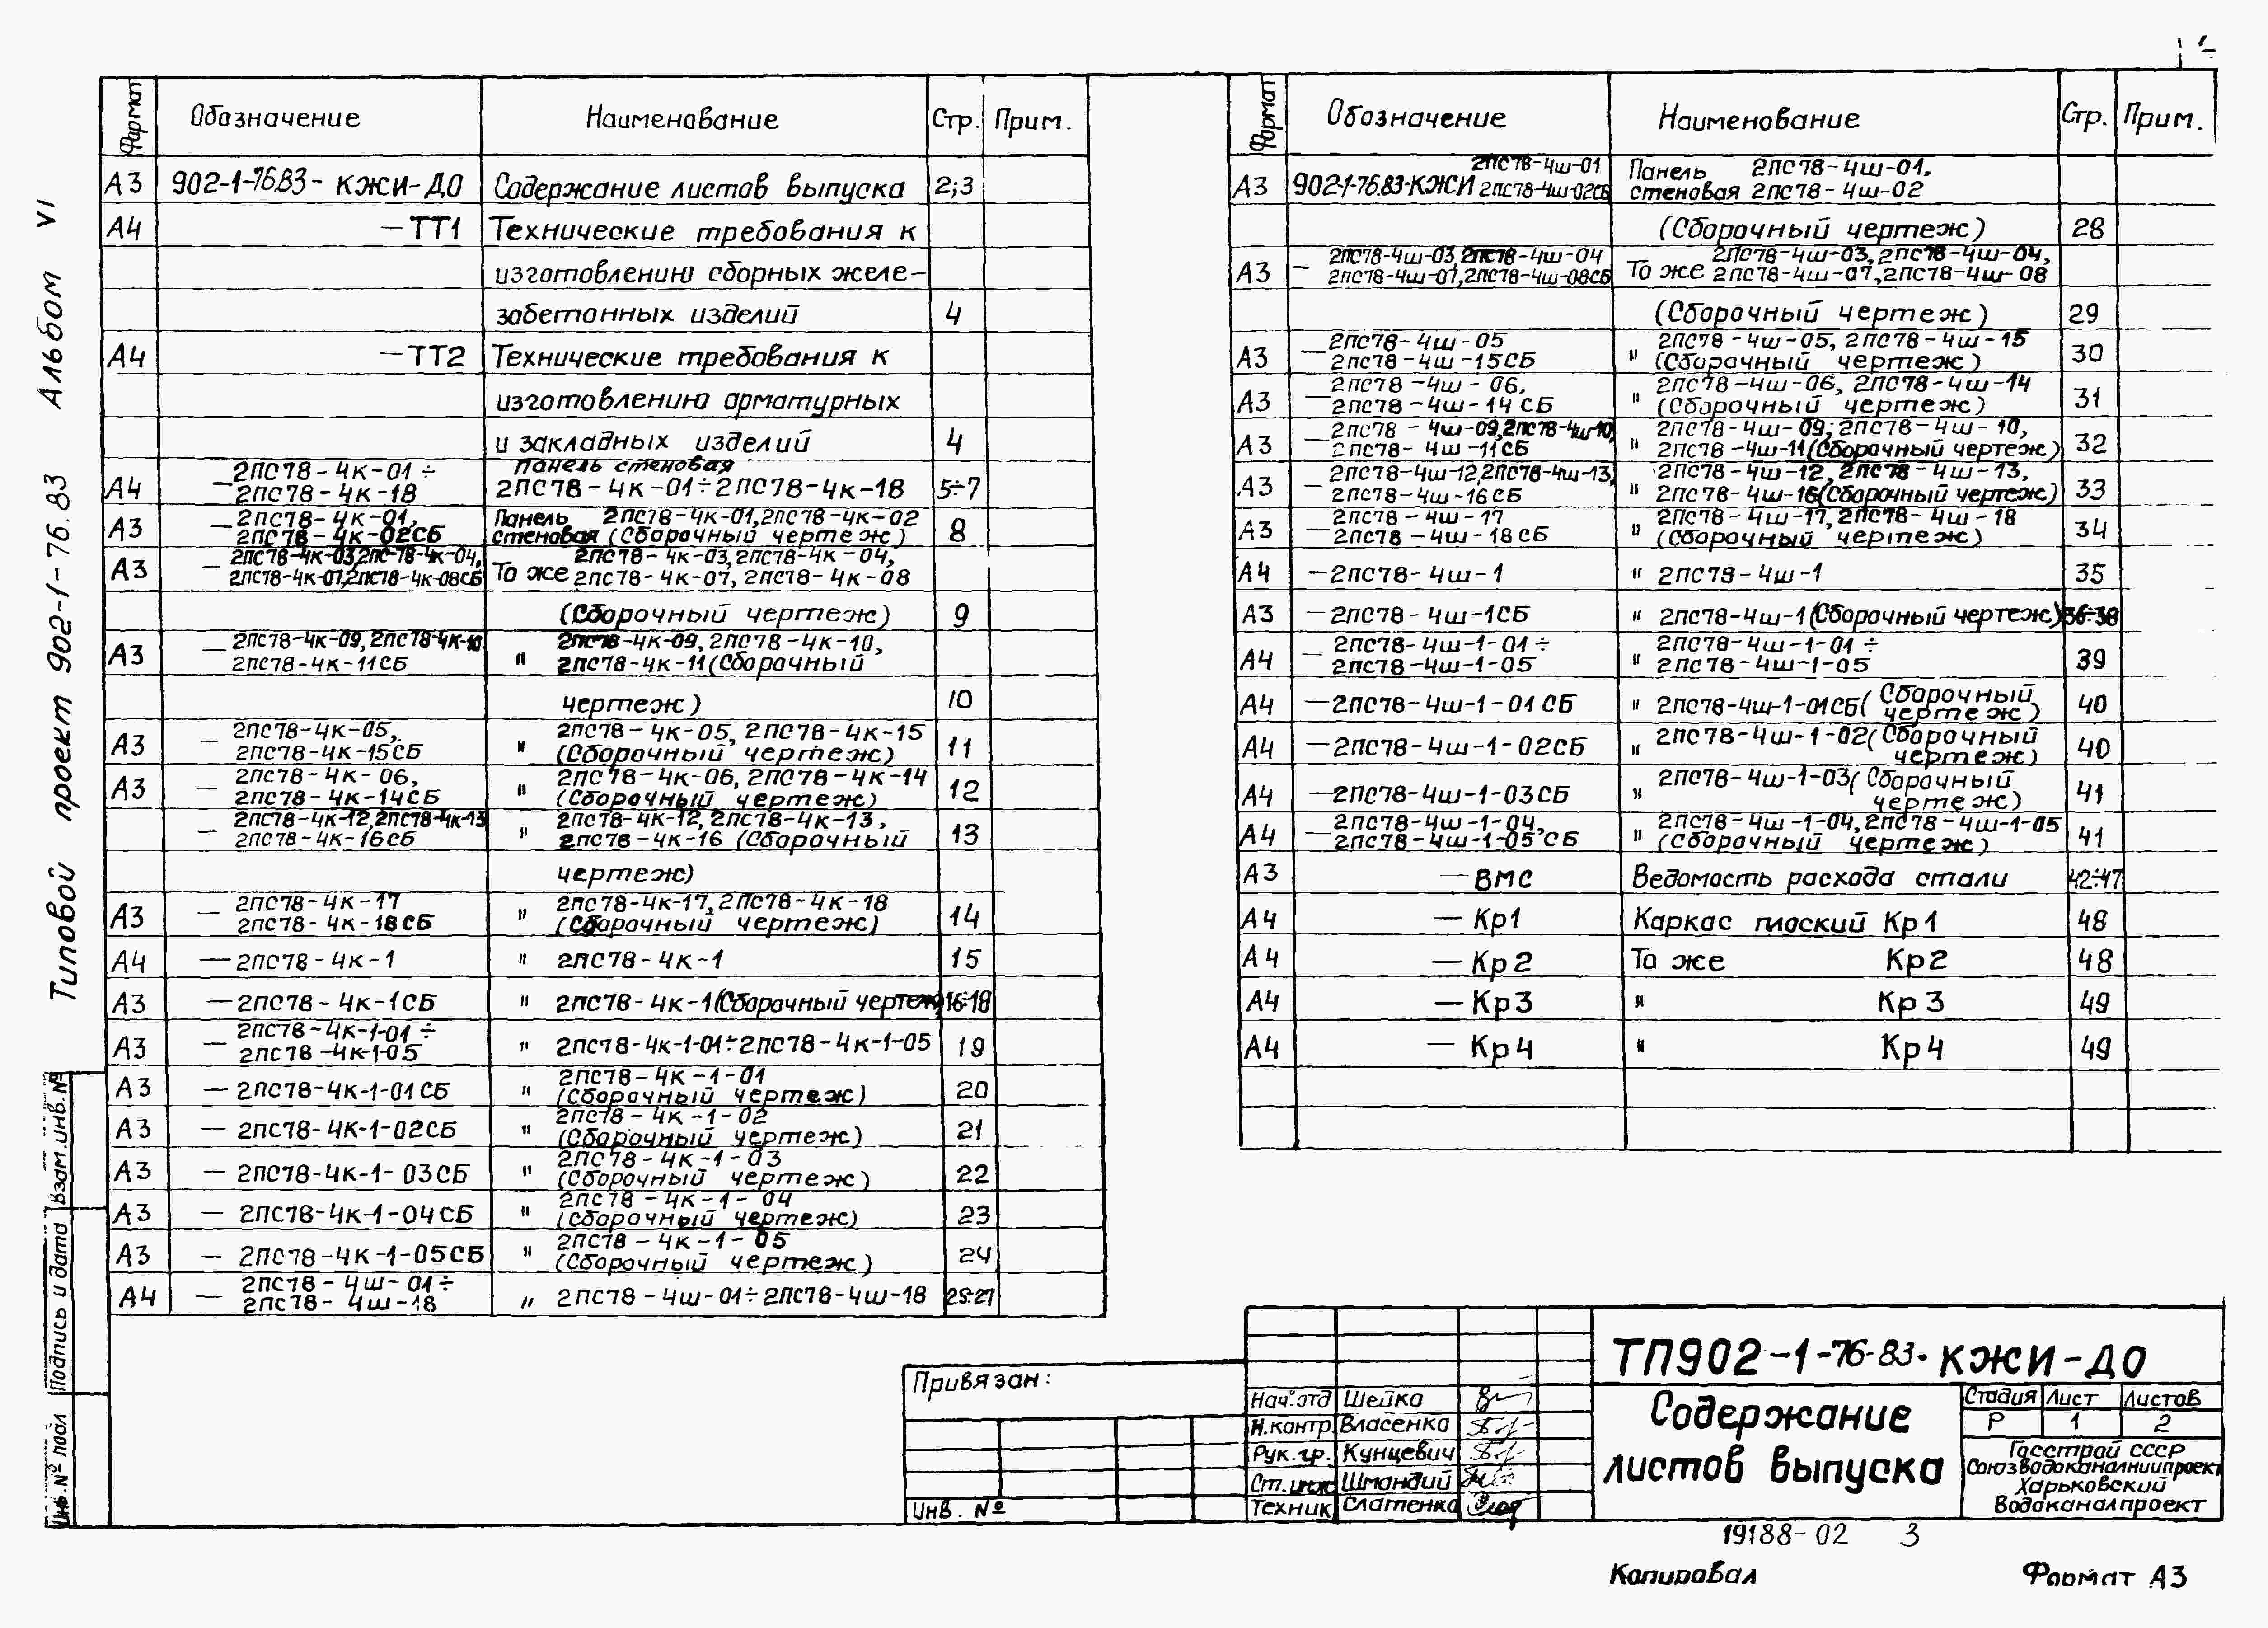 Типовой проект 902-1-76.83 Альбом VI
Формат Обозначение Наименование Стр. Прим.
А3 902-1-76.83- КЖИ-ДО Содержание листов выпуска 2;3
А4 -ТТ1 Технические требования к
изготовлению сборных желе-
забетонных изделий 4
А4 -ТТ2 Технические требования к
изготовлению арматурных
и закладных изделий 4
2ПС78-4к-01÷ Панель стеновая
А4 -2ПС78-4к-18 2ПС78-4к-01÷2ПС78-4к-18 5÷7
-2ПС78-4к-01, Панель 2ПС78-4к-01,2ПС78-4к-02
А3 2ПС78-4к-02СБ стеновая (Сборочный чертеж) 8
2ПС78-4к-03,2ПС-78-4к-04, 2ПС78-4к-03,2ПС78-4к-04,
А3 - 2ПС78-4к-07,2ПС78-4к-08СБ То же 2ПС78-4к-07,2ПС78-4к-08
(Сборочный чертеж) 9
2ПС78-4к-09,2ПС78-4к-10 2ПС78-4к-09,2ПС78-4к-10,
А3 - 2ПС78-4к-11СБ " 2ПС78-4к-11(Сборочный
чертеж) 10
2ПС78-4к-05, 2ПС78-4к-05, 2ПС78-4к-15
А3 - 2ПС78-4к-15СБ " (Сборочный чертеж) 11
2ПС78-4к-06, 2ПС78-4к-06,2ПС78-4к-14
А3 - 2ПС78-4к-14СБ " (Сборочный чертеж) 12
2ПС78-4к-12,2ПС78-4к-13 2ПС78-4к-12,2ПС78-4к-13,
- 2ПС78-4к-16СБ " 2ПС78-4к-16 (Сборочный 13
чертеж)
2ПС78-4к-17 2ПС78-4к-17,2ПС78-4к-18
А3 - 2ПС78-4к-18СБ " (Сборочный чертеж) 14
А4 -2ПС78-4к-1 " 2ПС78-4к-1 15
А3 -2ПС78-4к-1СБ " 2ПС78-4к-1(Сборочный чертеж) 16÷18
2ПС78-4к-1-01÷
А3 - 2ПС78-4к-1-05 " 2ПС78-4к-1-01÷2ПС78-4к-1-05 19
2ПС78-4к-1-01
А3 -2ПС78-4к-1-01СБ " (Сборочный чертеж) 20
2ПС78-4к-1-02
А3 - 2ПС78-4к-1-02СБ " (Сборочный чертеж) 21
2ПС78-4к-1-03
А3 - 2ПС78-4к-1-03СБ " (Сборочный чертеж) 22
2ПС78-4к-1-04
А3 - 2ПС78-4к-1-04СБ " (Сборочный чертеж) 23
2ПС78-4к-1-05
А3 - 2ПС78-4к-1-05СБ " (Сборочный чертеж) 24
2ПС78-4ш-01÷
А4 - 2ПС78-4ш-18 " 2ПС78-4ш-01÷2ПС78-4ш-18 25÷27
Формат Обозначение Наименование Стр. Прим.
2ПС78-4ш-01 Панель 2ПС78-4ш-01,
А3 902-1-76.83-КЖИ 2ПС78-4ш-02СБ стеновая 2ПС78-4ш-02
(Сборочный чертеж) 28
2ПС78-4ш-03,2ПС78-4ш-04 2ПС78-4ш-03,2ПС78-4ш-04,
А3 - 2ПС78-4ш-07,2ПС78-4ш-08СБ То же 2ПС78-4ш-07,2ПС78-4ш-08
(Сборочный чертеж) 29
2ПС78-4ш-05 2ПС78-4ш-05, 2ПС78-4ш-15
А3 - 2ПС78-4ш-15СБ " (Сборочный чертеж) 30
2ПС78-4ш-06, 2ПС78-4ш-06, 2ПС78-4ш-14
А3 - 2ПС78-4ш-14СБ " (Сборочный чертеж) 31
2ПС78-4ш-09,2ПС78-4ш-10, 2ПС78-4ш-09,2ПС78-4ш-10,
А3 - 2ПС78-4ш-11СБ " 2ПС78-4ш-11(Сборочный чертеж) 32
2ПС78-4ш-12,2ПС78-4ш-13, 2ПС78-4ш-12,2ПС78-4ш-13,
А3 - 2ПС78-4ш-16СБ " 2ПС78-4ш-16(Сборочный чертеж) 33
2ПС78-4ш-17 2ПС78-4ш-17,2ПС78-4ш-18
А3 - 2ПС78-4ш-18СБ " (Сборочный чертеж) 34
А4 -2ПС78-4ш-1 " 2ПС78-4ш-1 35
А3 -2ПС78-4ш-1СБ " 2ПС78-4ш-1(Сборочный чертеж) 36÷38
2ПС78-4ш-1-01÷ 2ПС78-4ш-1-01÷
А4 - 2ПС78-4ш-1-05 " 2ПС78-4ш-1-05 39
А4 -2ПС78-4ш-1-01СБ " 2ПС78-4ш-1-01СБ(Сборочный
чертеж) 40
А4 -2ПС78-4ш-1-02СБ " 2ПС78-4ш-1-02(Сборочный
чертеж) 40
А4 -2ПС78-4ш-1-03СБ " 2ПС78-4ш-1-03(Сборочный
чертеж) 41
2ПС78-4ш-1-04, 2ПС78-4ш-1-04,2ПС78-4ш-1-05
А4 - 2ПС78-4ш-1-05СБ " (Сборочный чертеж) 41
А3 -ВМС Ведомость расхода стали 42÷47
А4 -Кр1 Каркас плоский Кр1 48
А4 -Кр2 То же Кр2 48
А4 -Кр3 " Кр3 49
А4 -Кр4 " Кр4 49
Инв.№ подл Подпись и дата Взам.инв.№
Привязан:
Инв. №
Нач.отд Шейко
Н.контр. Власенко
Рук.гр. Кунцевич
Ст.инж Шмандий
Техник Слатенко
ТП902-1-76-83. КЖИ-ДО
Содержание
листов выпуска
Стадия Лист Листов
Р 1 2
Госстрой СССР
Союзводоканалниипроект
Харьковский
Водоканалпроект
19188-02 3
Копировал Формат А3